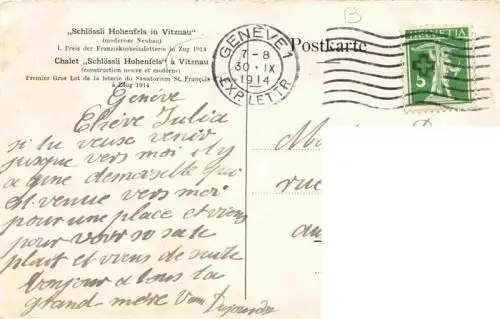 „Schlössli Hohenfels in Vitznau"
(moderner Neubau)
I. Preis der Franziskusheimlotterie in Zug 1914
Chalet „Schlössli Hohenfels" à Vitznau
(construction neuve et moderne)
Premier Gros Lot de la loterie du Sanatorium St. François
à Zug 1914
Postkarte
GENÈVE 1
7-8
30 · IX
1914
EXP. LETTR.
HELVETIA
5
B
Genève
Chère Julia
si tu veuse venir
jusque vers moi il y
a une demoiselle qui
est venue vers moi
pour une place et viens
pour voir so sa te
plait et viens de suite
bonjour a tous la
grand-mère